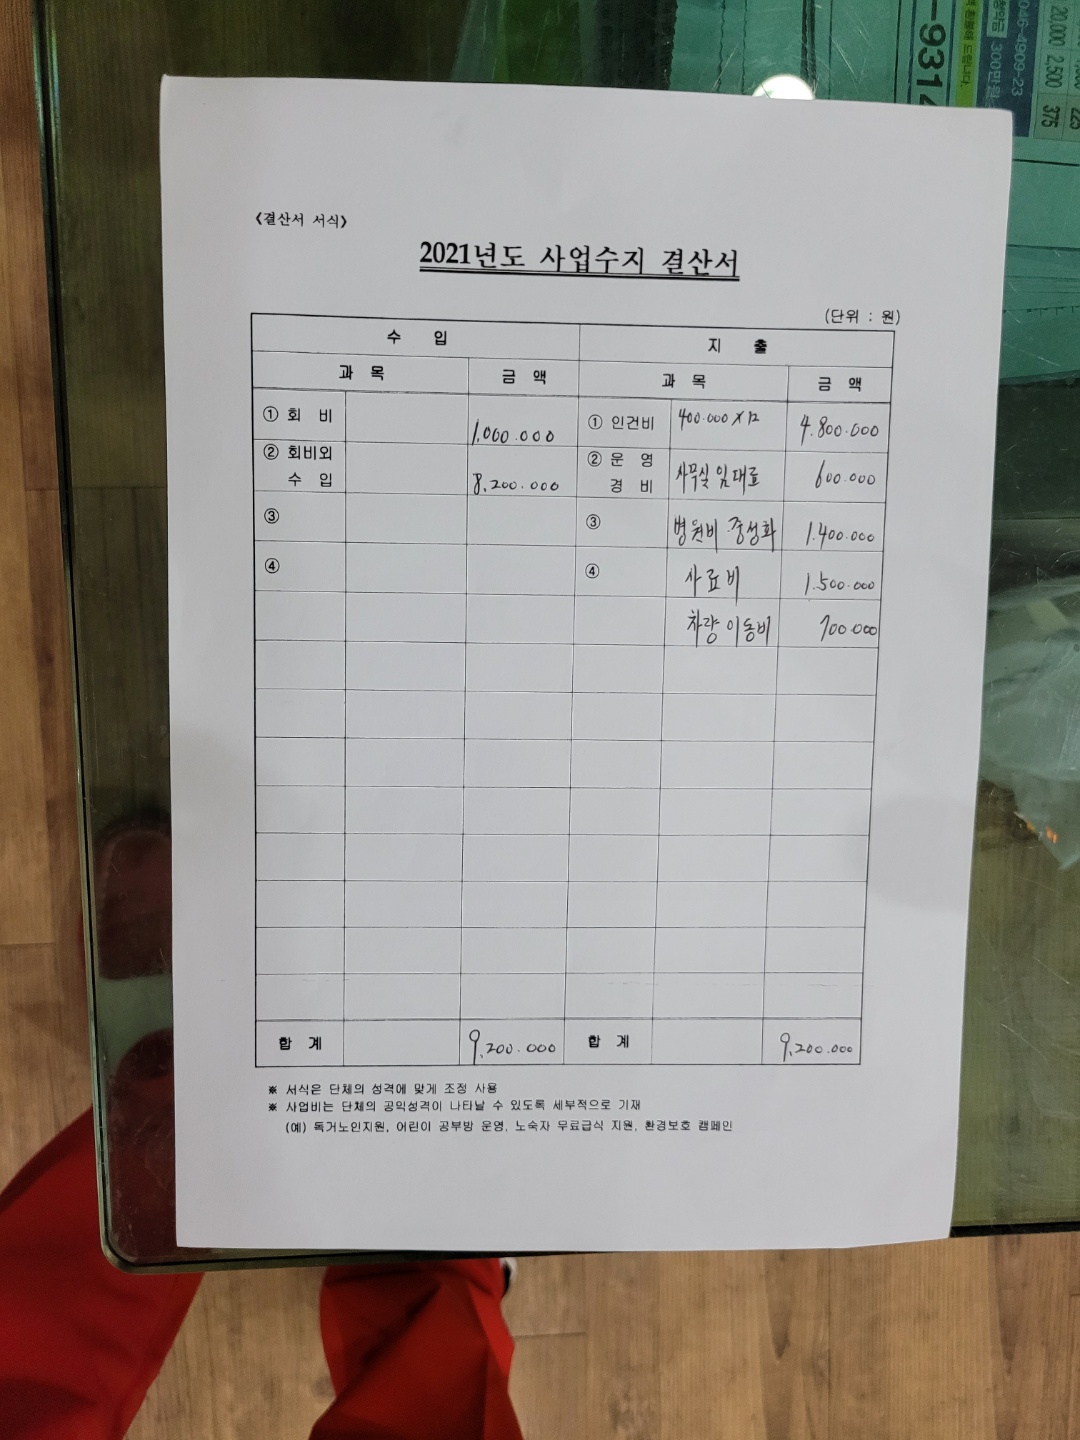 -931
046-4909-23
300만원
20,000 2,500 375
《결산서 서식》
2021년도 사업수지 결산서
(단위 : 원)
수 입 지 출
과 목 금 액 과 목 금 액
① 회 비 1,000.000 ① 인건비 400.000 X 12 4.800.000
② 회비외 수 입 8,200.000 ② 운 영 경 비 사무실 임대료 600.000
③ ③ 병원비 중성화 1.400.000
④ ④ 사료비 1.500.000
차량 이동비 700.000
합 계 9,200.000 합 계 9,200.000
※ 서식은 단체의 성격에 맞게 조정 사용
※ 사업비는 단체의 공익성격이 나타날 수 있도록 세부적으로 기재
(예) 독거노인지원, 어린이 공부방 운영, 노숙자 무료급식 지원, 환경보호 캠페인